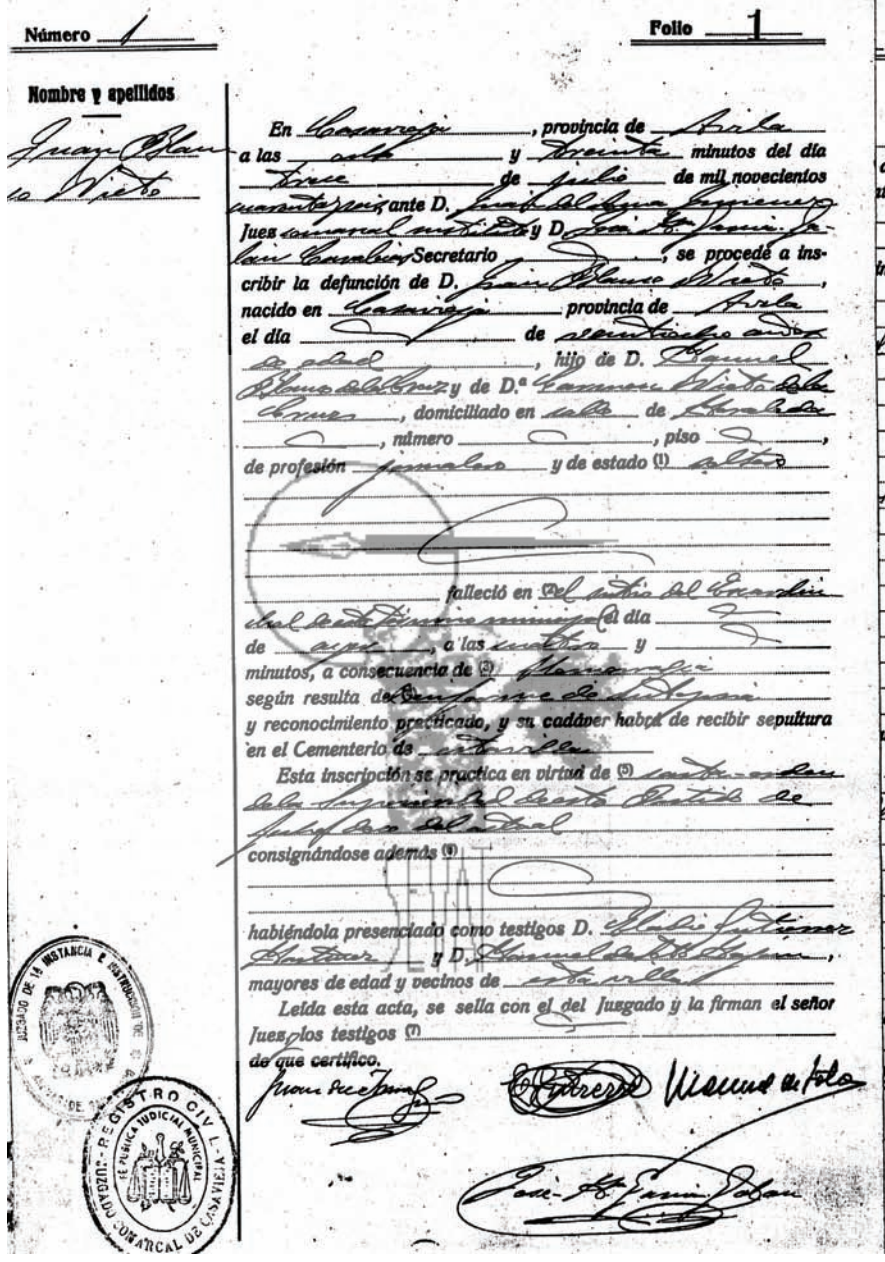 Número 1
Folio 1
Nombre y apellidos
Juan Blan-
co Nieto
En Casavieja, provincia de Avila
a las ocho y treinta minutos del día
trece de julio de mil novecientos
cuarenta y seis, ante D. Juan del Jimenez
Juez comarcal sustituto y D. José Mª Garcia Ga-
lan Secretario, se procede a ins-
cribir la defunción de D. Juan Blanco Nieto,
nacido en Casavieja provincia de Avila
el día de veintiocho años
de edad, hijo de D. Manuel
Blanco de la Cruz y de D.ª Nieto de la
Cruz, domiciliado en calle de
, número , piso ,
de profesión jornalero y de estado (1) soltero
falleció en (2) el sitio del
de este término municipal el día
de ayer, a las cuatro y
minutos, a consecuencia de (3) Hemorragia
según resulta de (4) informe de autopsia
y reconocimiento practicado, y su cadáver habrá de recibir sepultura
en el Cementerio de esta villa
Esta inscripción se practica en virtud de (5) carta-orden
de la Superioridad de este Partido de
del actual
consignándose además (6)
habiéndola presenciado como testigos D. Eladio Gutierrez
Martinez y D. Manuel de ,
mayores de edad y vecinos de esta villa
Leída esta acta, se sella con el del Juzgado y la firman el señor
Juez, los testigos (7)
de que certifico.
E Gutierrez Manuel de
José-Mª Garcia Galan
JUZGADO DE 1ª INSTANCIA E INSTRUCCION DE
REGISTRO CIVIL - JUZGADO COMARCAL DE CASAVIEJA
FE PUBLICA JUDICIAL MUNICIPAL